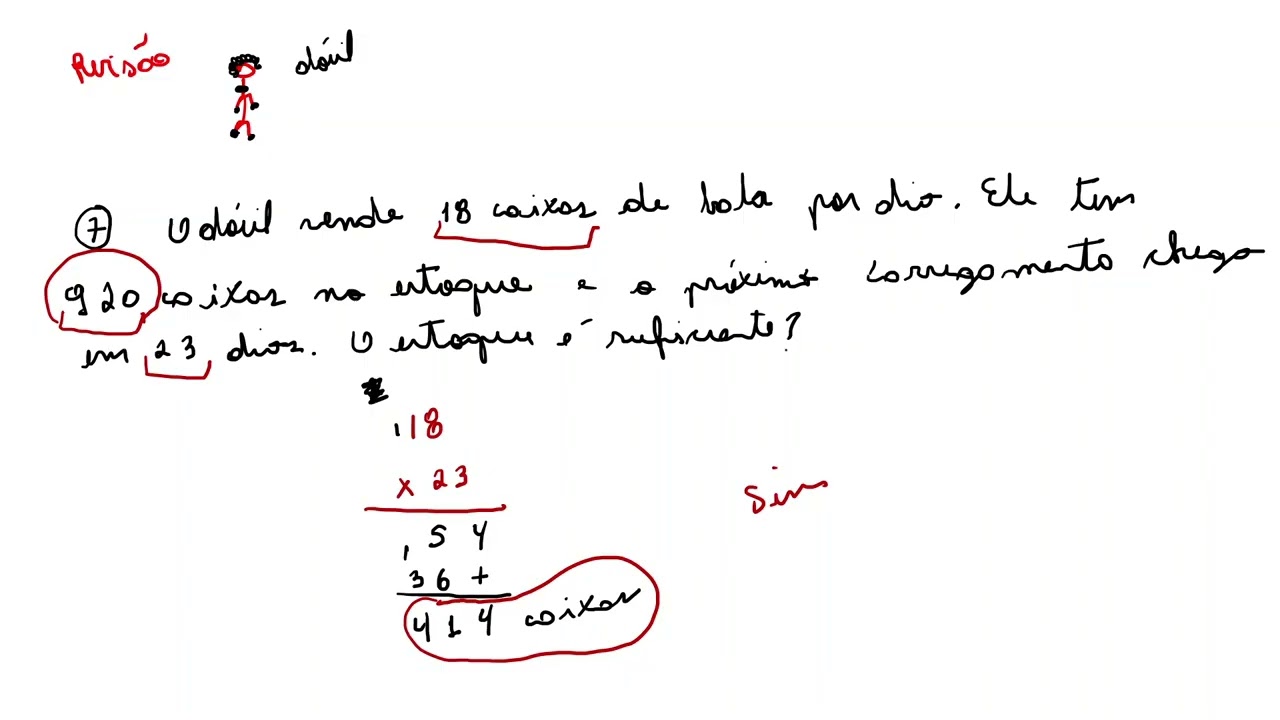 Revisão
dóil
7 O dóil vende 18 caixas de bala por dia. Ele tem
920 caixas no estoque e o próximo carregamento chega
em 23 dias. O estoque é suficiente?
18
x 23
54
36+
414 caixas
Sim